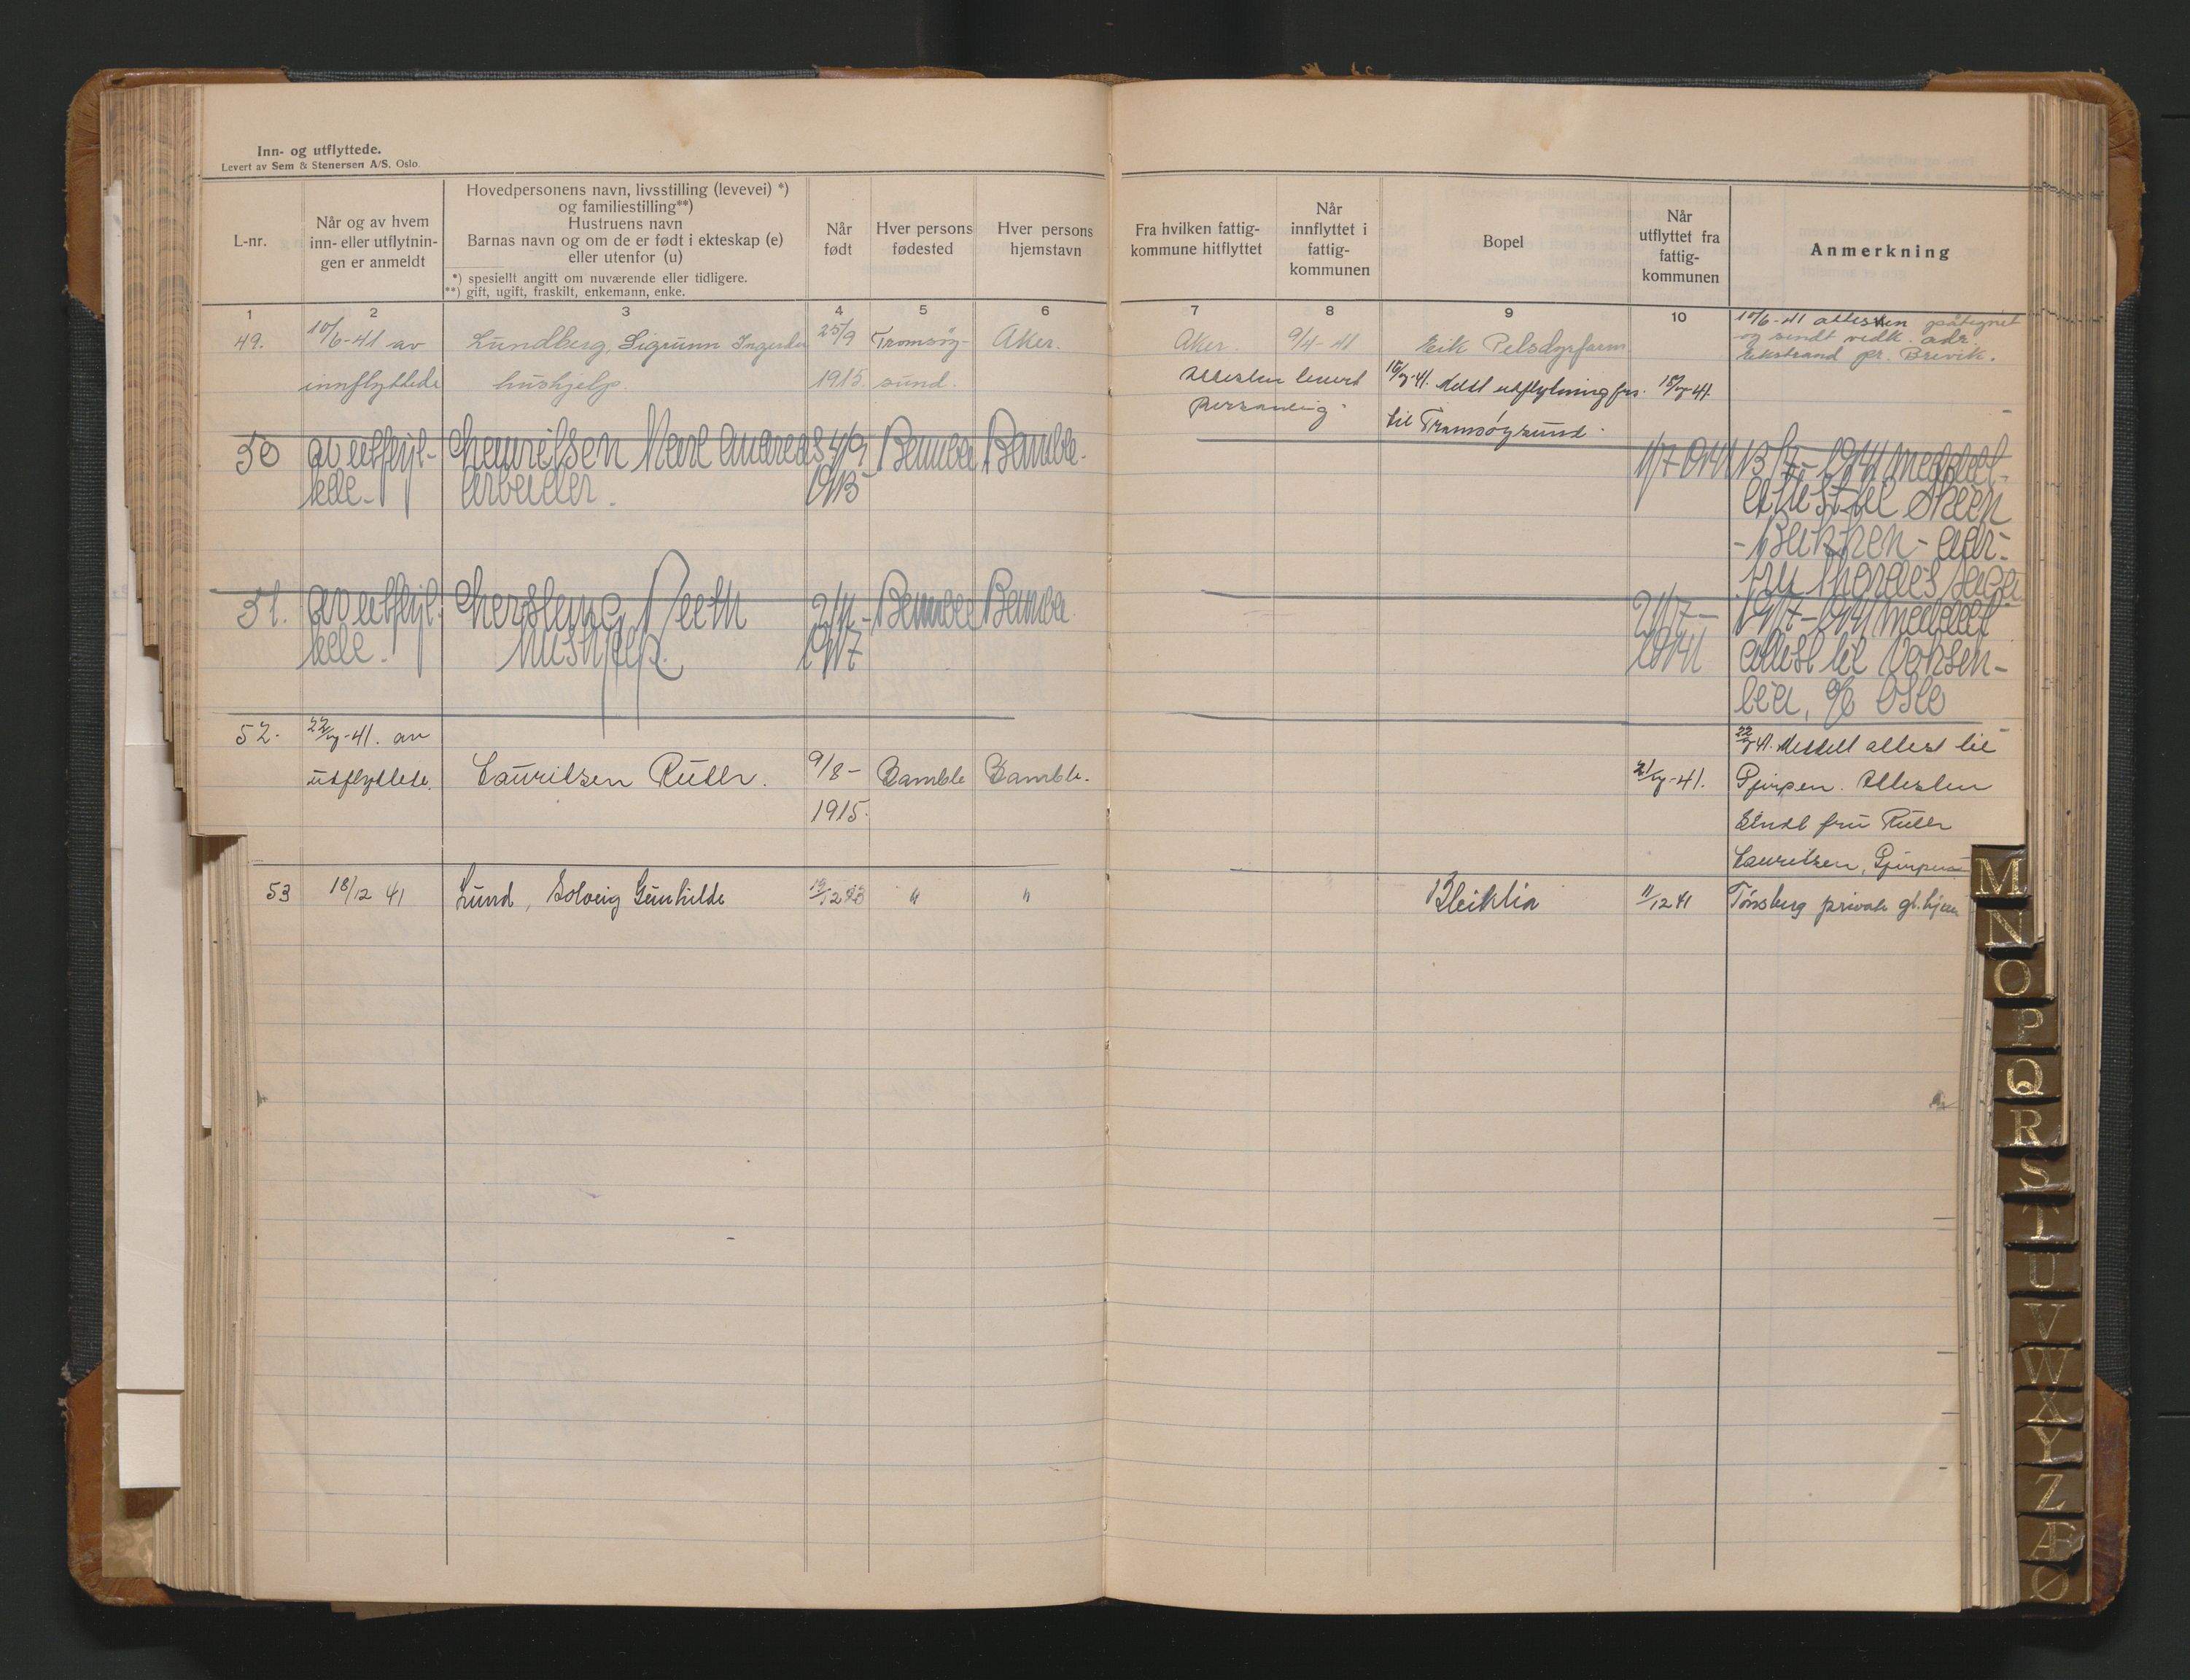 Inn- og utflyttede.
Levert av Sem & Stenersen A/S. Oslo.
L-nr.
Når og av hvem
inn- eller utflytnin-
gen er anmeldt
Hovedpersonens navn, livsstilling (levevei) *)
og familiestilling**)
Hustruens navn
Barnas navn og om de er født i ekteskap (e)
eller utenfor (u)
*) spesiellt angitt om nuværende eller tidligere.
**) gift, ugift, fraskilt, enkemann, enke.
Når
født
Hver persons
fødested
Hver persons
hjemstavn
Fra hvilken fattig-
kommune hitflyttet
Når
innflyttet i
fattig-
kommunen
Bopel
Når
utflyttet fra
fattig-
kommunen
Anmerkning
1 2 3 4 5 6 7 8 9 10
49. 10/6-41 av Lundberg, Sigrunn 25/9 Tromsøy- Aker. Aker. 9/4-41 Eik Pelsdyrfarm 10/6-41 attesten påtegnet
og sendt vedk. adr.
Ekstrand pr. Brevik.
innflyttede hushjelp. 1915. sund. Attesten levert 15/7-41. Meldt utflytning fra 15/7-41.
personlig til Tromsøysund.
50 av utflyt- Lauritsen Karl Andreas 4/9 Bamble Bamble. 1/7-1941 13/7-1941 meddelt
tede- arbeider. 1913 attest til Skien
-Bakken- adr:
51. av utflyt- 2/11- Bamble Bamble. 21/7- 19/7-1941 meddelt
tede. hushjelp. 1917 1941 attest til Voksen-
lia, Oslo
52. 22/7-41. av 22/7-41. Meddelt attest til
utflyttede. Lauritsen Ruth. 9/8- Bamble Bamble. 21/7-41. Gjerpen. Attesten
1915. sendt fru Ruth
Lauritsen, Gjerpen
53 18/12 41 Lund, Solveig Gunhilde " " Bleiklia 11/12 41 Tønsberg private gl.hjem
M
N
O
P
Q
R
S
T
U
V
W
X
Y
Z
Æ
Ø